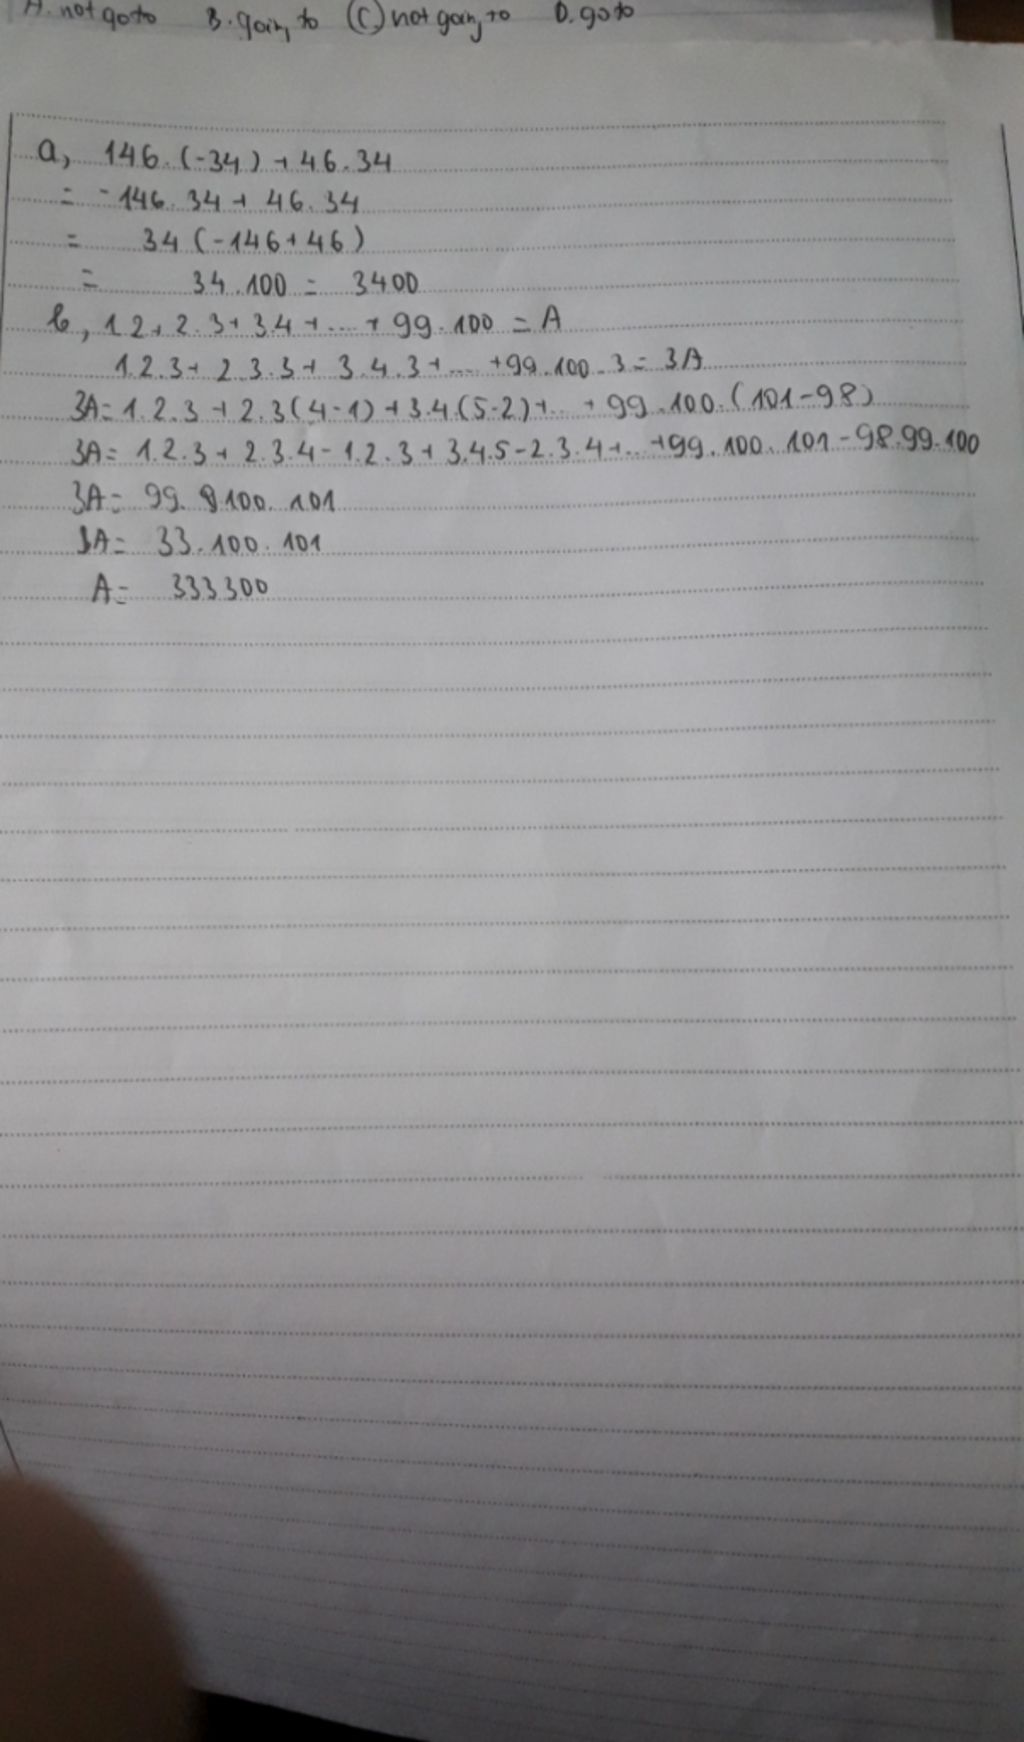 A. not go to B. going to (C) not going to D. go to
a, 146.(-34) + 46.34
= -146.34 + 46.34
= 34 (-146+46)
= 34.100 = 3400
b, 1.2+2.3+3.4+...+99.100 = A
1.2.3+2.3.3+3.4.3+...+99.100.3 = 3A
3A = 1.2.3+2.3(4-1)+3.4.(5-2)+...+99.100.(101-98)
3A = 1.2.3+2.3.4-1.2.3+3.4.5-2.3.4+...+99.100.101-98.99.100
3A = 99.100.101
A = 33.100.101
A = 333300